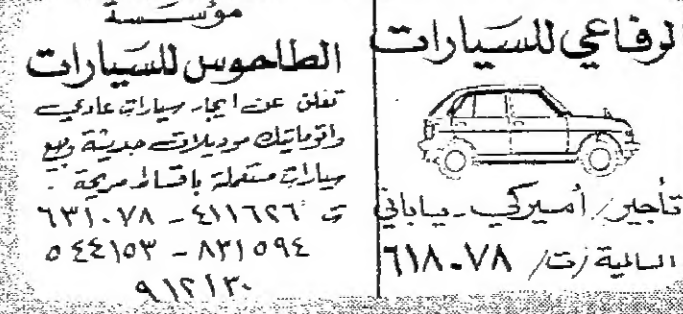 الرفاعي للسيارات
تأجير / أميركي - ياباني
السالمية / ت / ٦١٨٠٧٨
مؤسسة
الطاحوس للسيارات
تعلن عن ايجار سيارات عادي
واتوماتيك موديلات حديثة وبيع
سيارات مستعملة باقساط مريحة .
ت ٤١١٦٢٦ - ٦٣١٠٧٨
٨٣١٥٩٤ - ٥٤٤١٥٣
٩١٢١٣٠